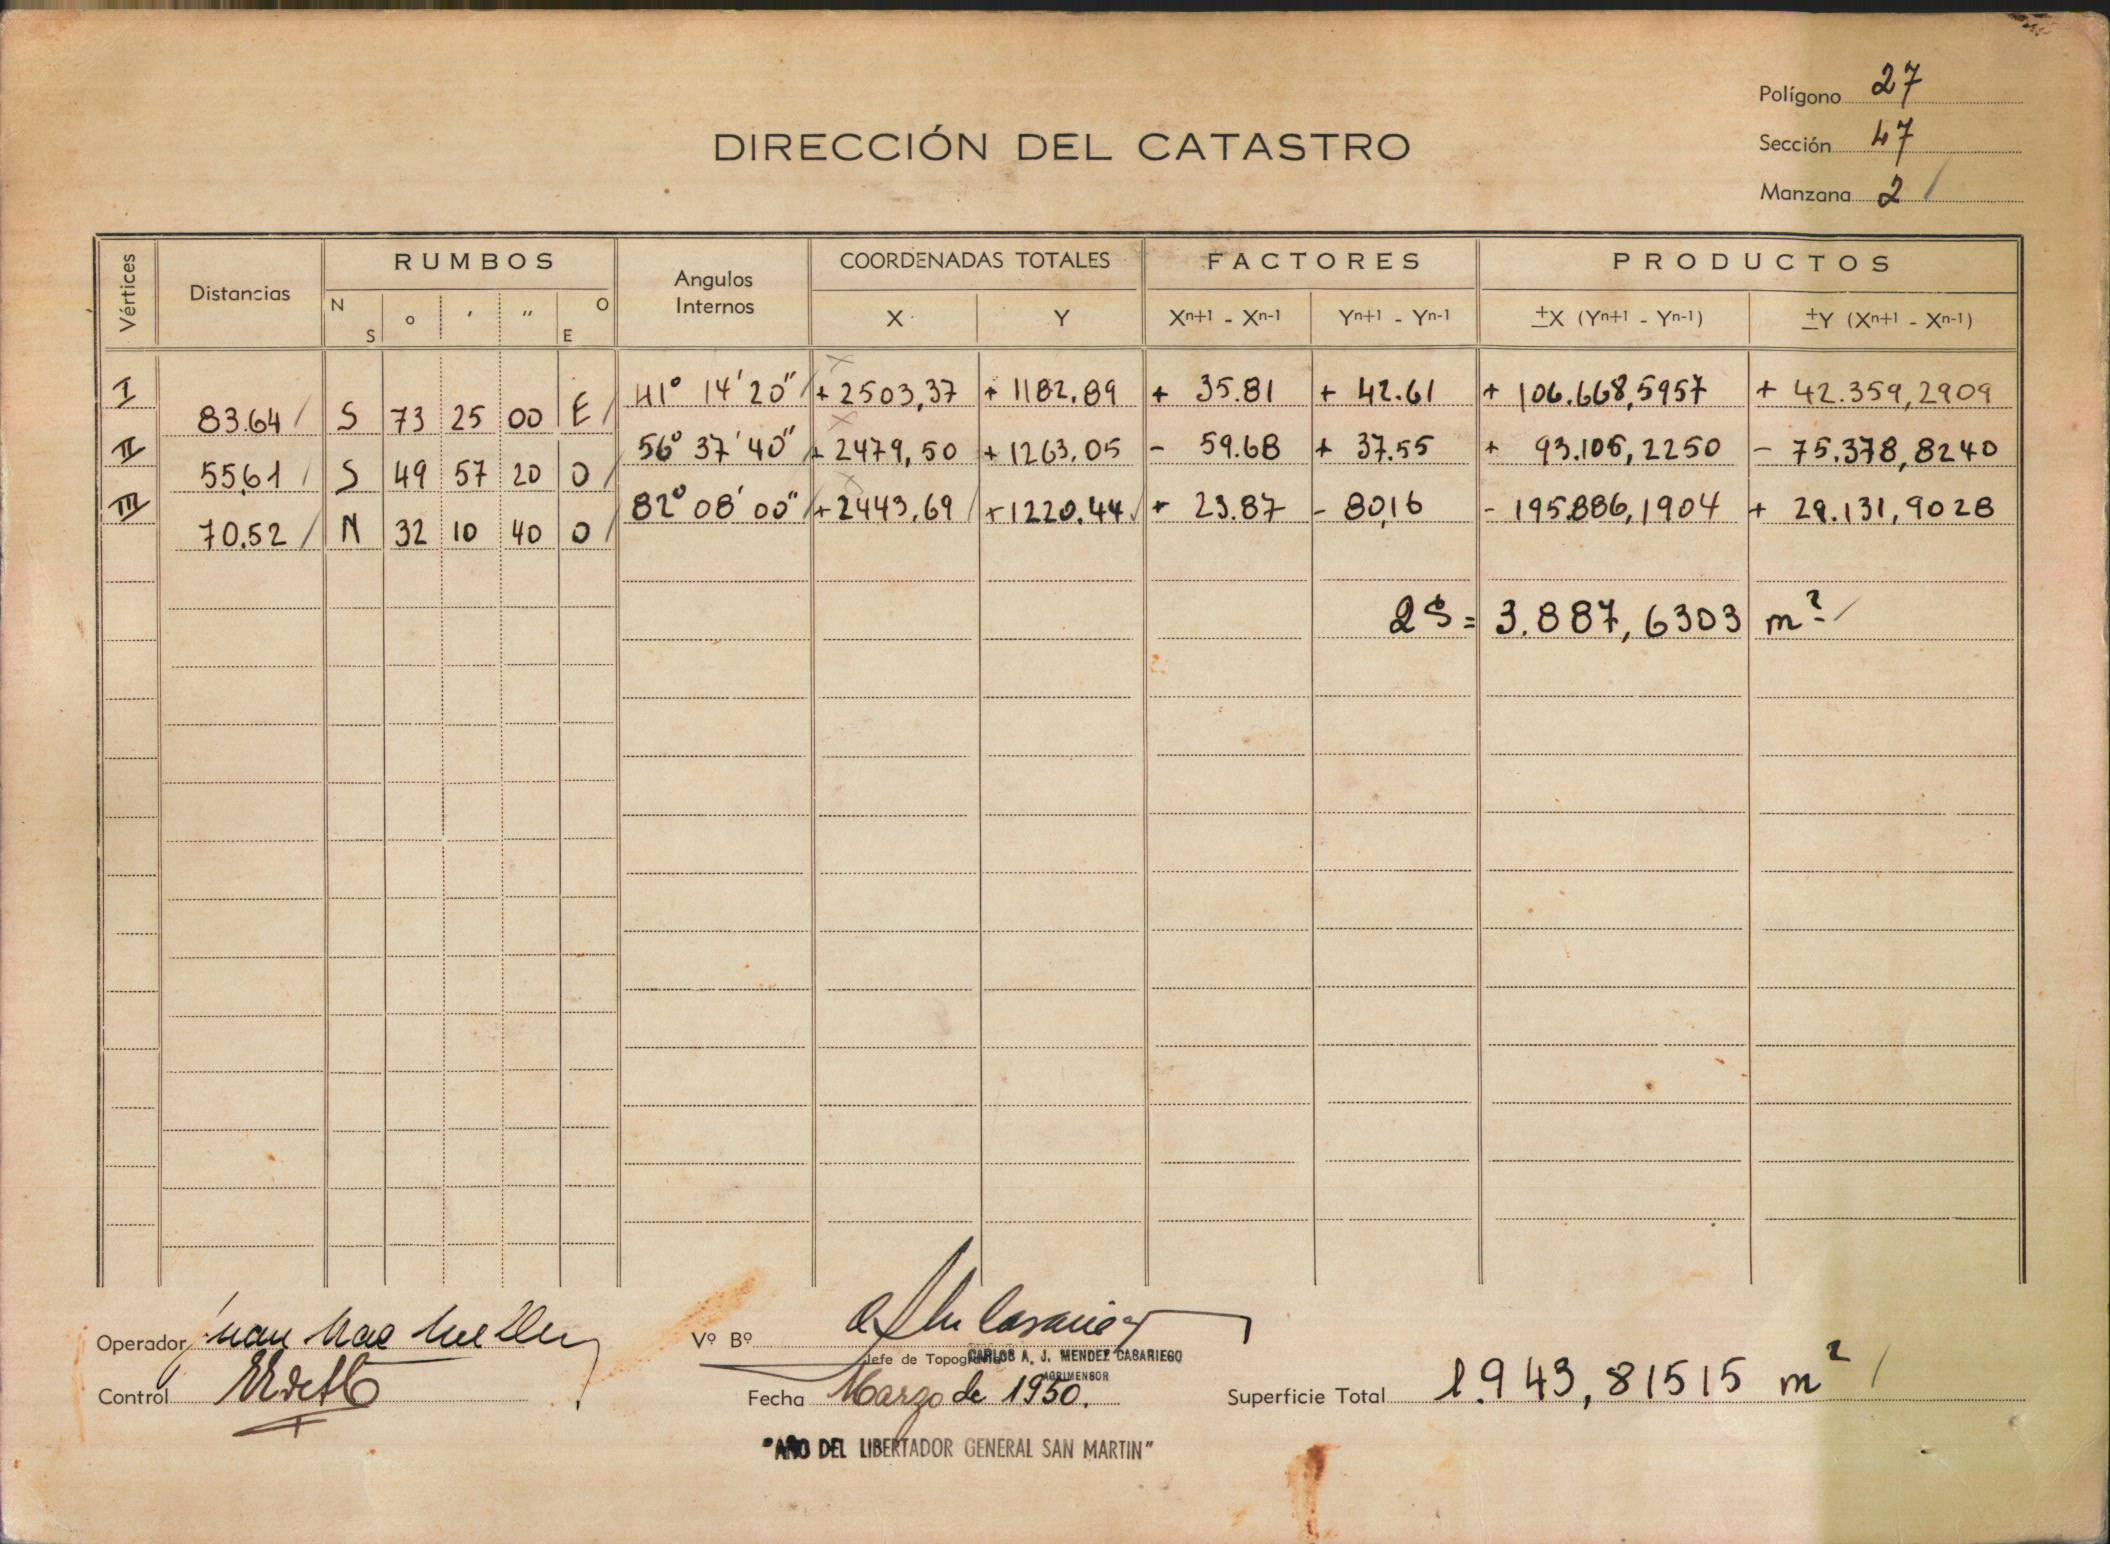 Polígono 27
DIRECCIÓN DEL CATASTRO
Sección 47
Manzana 2
Vértices Distancias RUMBOS Angulos Internos COORDENADAS TOTALES FACTORES PRODUCTOS
N S o ′ ″ O E X Y Xn+1 - Xn-1 Yn+1 - Yn-1 ±X (Yn+1 - Yn-1) ±Y (Xn+1 - Xn-1)
I 41° 14′ 20″ + 2503,37 + 1182.89 + 35.81 + 42.61 + 106.668,5957 + 42.359,2909
83.64 S 73 25 00 E
II 56° 37′ 40″ + 2479,50 + 1263.05 - 59.68 + 37.55 + 93.105,2250 - 75.378,8240
55,61 S 49 57 20 O
III 82° 08′ 00″ + 2443,69 + 1220.44 + 23.87 - 80,16 - 195.886,1904 + 29.131,9028
70.52 N 32 10 40 O
2S = 3.887,6303 m²
Operador
Vº Bº
Jefe de Topografía CARLOS A. J. MENDEZ CASARIEGO
AGRIMENSOR
Control
Fecha Marzo de 1950.
Superficie Total 1.943,81515 m²
"AÑO DEL LIBERTADOR GENERAL SAN MARTIN"